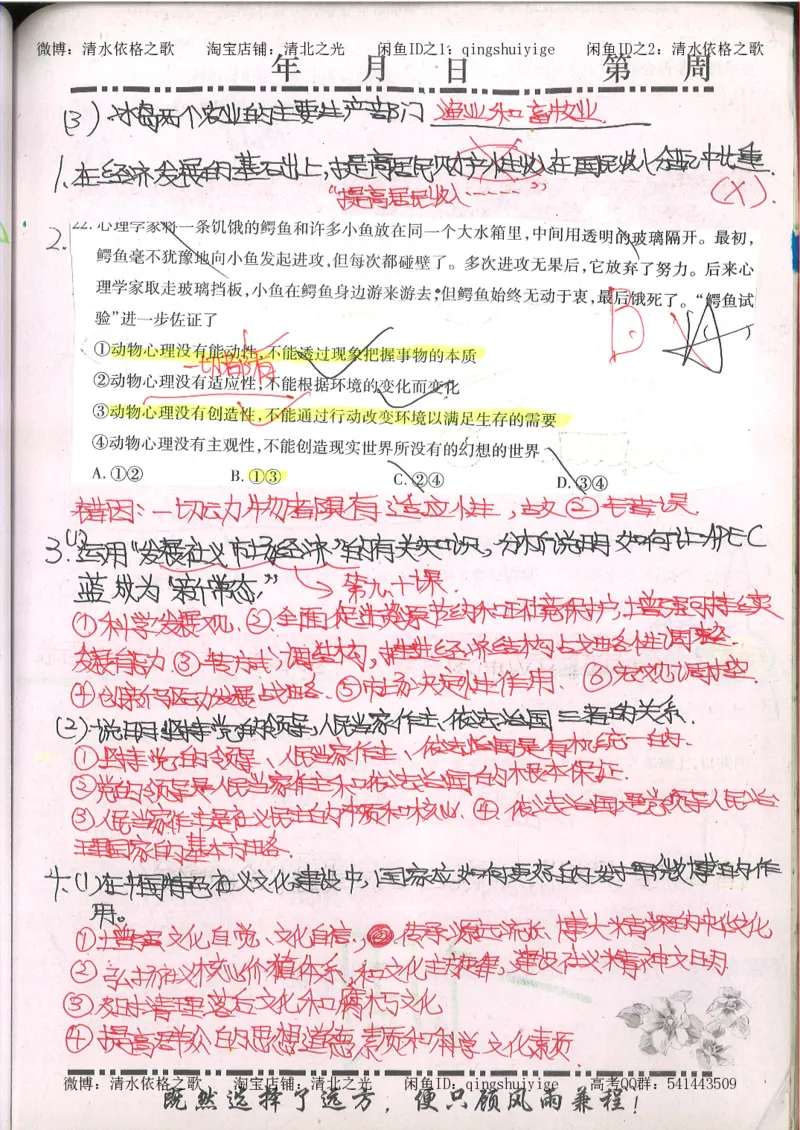 微博：清水依格之歌 淘宝店铺：清北之光 闲鱼ID之1：qingshuiyige 闲鱼ID之2：清水依格之歌
年 月 日 第 周
(3) 冰岛两个农业的主要生产部门 渔业和畜牧业.
1. 在经济发展的基础上，提高居民财产性收入在国民收入分配中比重.
"提高居民收入……" (×).
2. 22. 心理学家将一条饥饿的鳄鱼和许多小鱼放在同一个大水箱里，中间用透明的玻璃隔开。最初，
鳄鱼毫不犹豫地向小鱼发起进攻，但每次都碰壁了。多次进攻无果后，它放弃了努力。后来心
理学家取走玻璃挡板，小鱼在鳄鱼身边游来游去；但鳄鱼始终无动于衷，最后饿死了。“鳄鱼试
验”进一步佐证了
B. A
①动物心理没有能动性，不能透过现象把握事物的本质
一切都有
②动物心理没有适应性，不能根据环境的变化而变化
③动物心理没有创造性，不能通过行动改变环境以满足生存的需要
④动物心理没有主观性，不能创造现实世界所没有的幻想的世界
A. ①② B. ①③ C. ②④ D. ③④
错因：一切动物都具有适应性，故②错误.
3. (1) 运用“发展社义市场经济”的有关知识，分析说明如何让APEC
蓝成为“新常态” → 第九十课.
①科学发展观. ②全面促进资源节约和环境保护，增强可持续
发展能力 ③转方式，调结构，推进经济结构战略性调整.
④创新驱动发展战略. ⑤市场决定性作用. ⑥宏观调控.
(2). 说明坚持党的领导，人民当家作主，依法治国三者的关系.
①坚持党的领导、人民当家作主、依法治国是有机统一的.
②党的领导是人民当家作主和依法治国的根本保证.
③人民当家作主是社义民主的本质和核心. ④. 依法治国是党领导人民治
理国家的基本方略.
4. (1) 在中国特色社义文化建设中，国家应如何更有的发挥微博的作
用。
①增强文化自觉、文化自信，传承源远流长、博大精深的中华文化
②弘扬社义核心价值体系，和文化主旋律，建设社义精神文明
③及时清理落后文化和腐朽文化
④提高群众的思想道德素质和科学文化素质.
微博：清水依格之歌 淘宝店铺：清北之光 闲鱼ID：qingshuiyige 高考QQ群：541443509
既然选择了远方，便只顾风雨兼程！